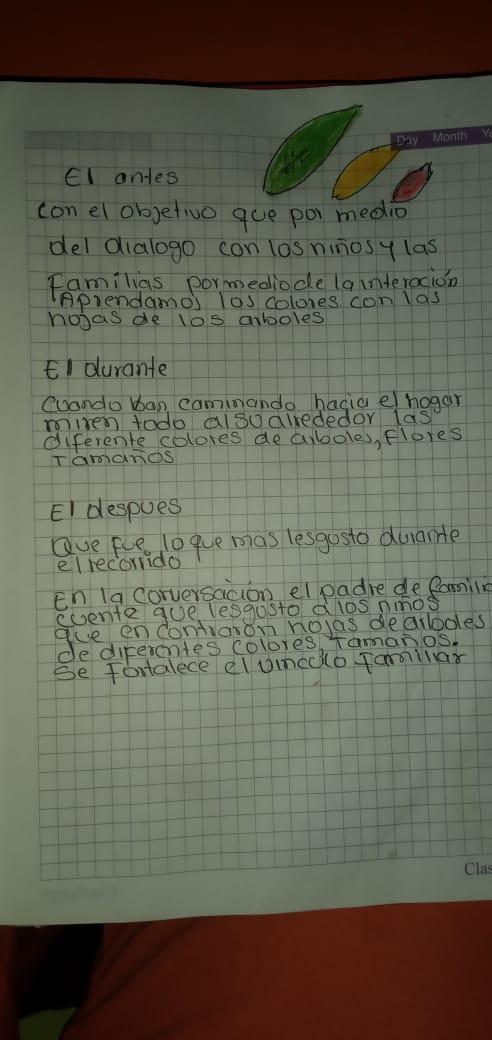 Day Month Ye
El antes
con el objetivo que por medio
del dialogo con los niños y las
Familias por medio de la interación
Aprendamos los colores con las
hojas de los arboles
El durante
Cuando van caminando hacia el hogar
miren todo al su alrededor las
diferente colores de arboles, flores
Tamaños
El despues
Que fue lo que mas les gusto durante
el recorrido
En la conversación el padre de familia
cuente que les gusto a los niños
que encontraron hojas de arboles
de diferentes colores, Tamaños.
Se Fortalece el Familiar
Clas